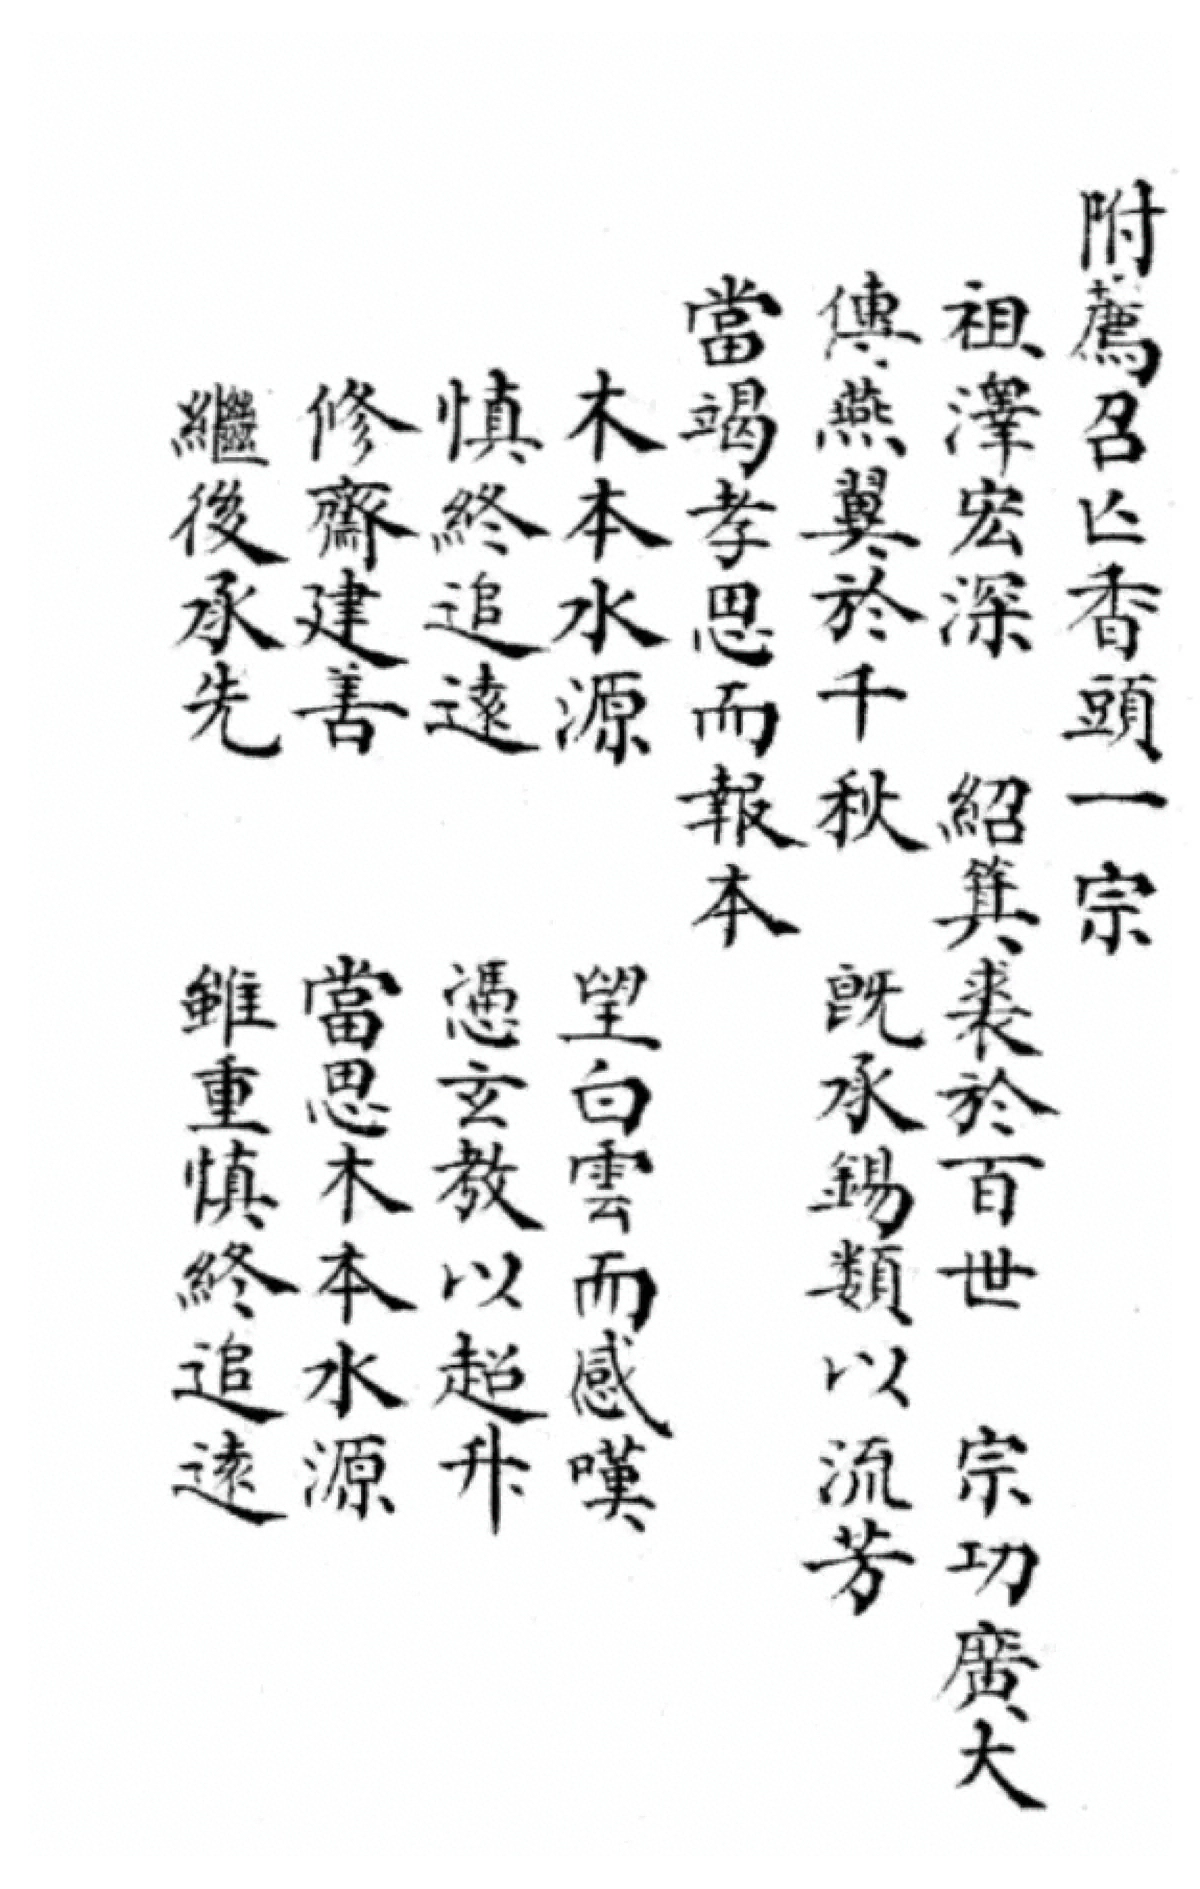 附薦召亾香頭一宗
祖澤宏深 紹箕裘於百世 宗功廣大
傳燕翼於千秋 既承錫類以流芳
當竭孝思而報本
木本水源 望白雲而感嘆
慎終追遠 憑玄教以超升
修齋建善 當思木本水源
繼後承先 雖重慎終追遠